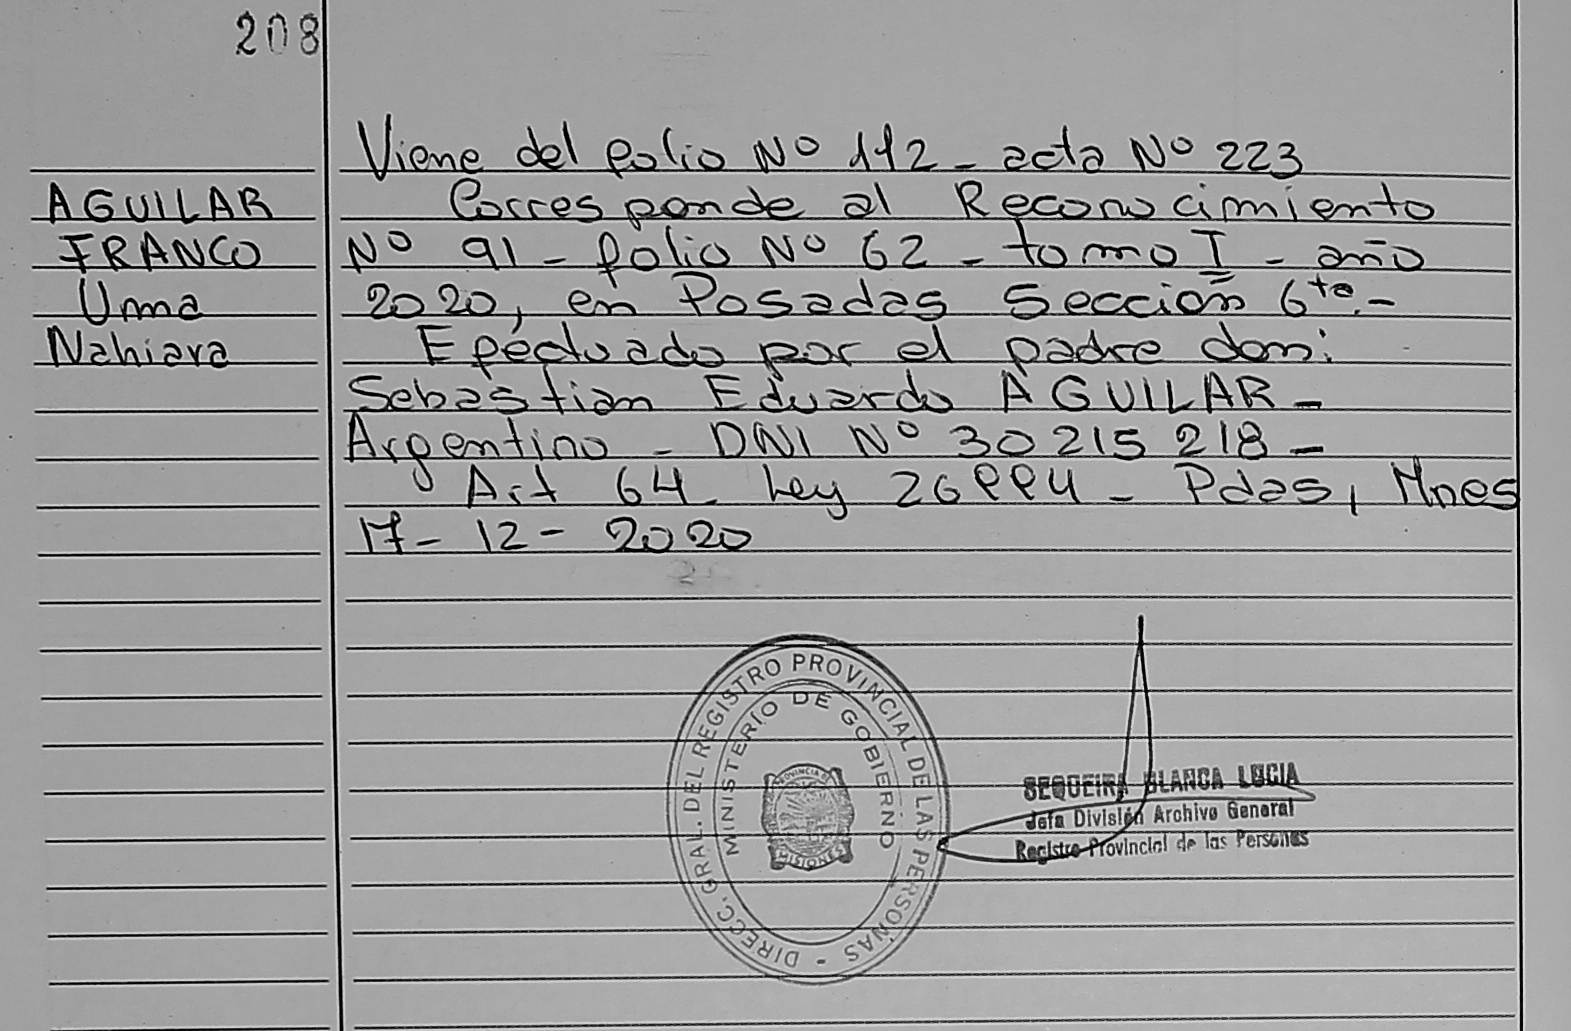 208
Viene del folio Nº 112 - acta Nº 223
AGUILAR
Corresponde al Reconocimiento
FRANCO
Nº 91 - folio Nº 62 - tomo I - año
Unma
2020, en Posadas Sección 6ta.-
Nahiara
Efectuado por el padre don:
Sebastian Eduardo AGUILAR -
Argentino - DNI Nº 30215218 -
Art 64 - Ley 26994 - Pdas, Mnes
17 - 12 - 2020
DIRECC. GRAL. DEL REGISTRO PROVINCIAL DE LAS PERSONAS -
MINISTERIO DE GOBIERNO
PROVINCIA DE
MISIONES
SEQUEIRA BLANCA LUCIA
Jefa División Archivo General
Registro Provincial de las Personas